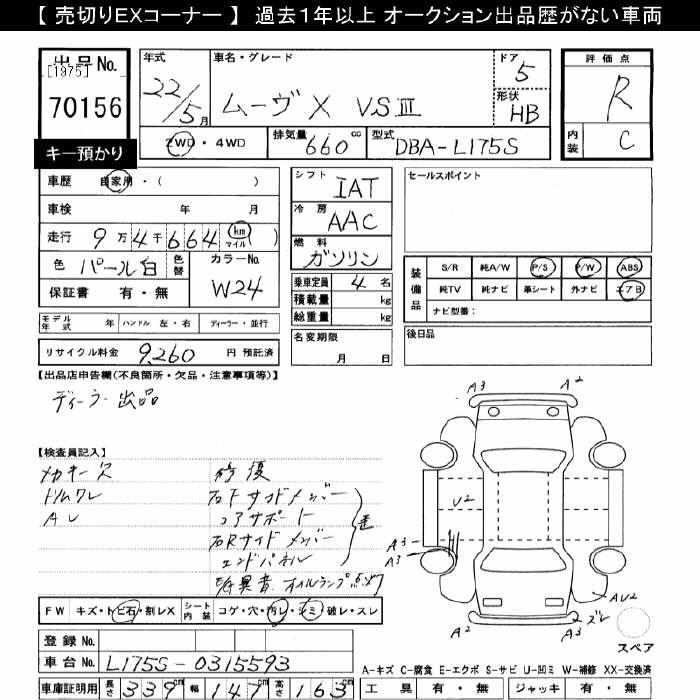 【 売切りEXコーナー 】 過去１年以上 オークション出品歴がない車両
出品No.
[1975]
70156
キー預かり
年式
22/5月
車名・グレード
ムーヴ X VSⅢ
ドア
5
形状
HB
評価点
R
内装
C
2WD・4WD
排気量
660cc
型式
DBA-L175S
車歴 自家用・( )
車検 年 月
走行 9万4千664 km マイル ( )
色 パール白 色替 カラーNo. W24
保証書 有・無
シフト
IAT
冷房
AAC
燃料
ガソリン
乗車定員 4 名
積載量 kg
総重量 kg
名変期限
月 日
セールスポイント
装備品
S/R 純A/W P/S P/W ABS
純TV 純ナビ 革シート 外ナビ エアB
ナビ型番：
後日品
モデル年式 年 ハンドル 左・右 ディーラー・並行
リサイクル料金 9,260 円 預託済
【出品店申告欄(不良箇所・欠品・注意事項等)】
ディーラー出品
【検査員記入】
メカキー欠
トリムワレ
修復
コアサポート
右Rサイドメンバー
エンドパネル
FW キズ・トビ石・割レX シート内装 コゲ・穴・汚レ・シミ・破レ・スレ
登録No.
車台No. L175S-0315593
車庫証明用 長さ 339cm 幅 147cm 高さ 163cm
A3
A2
U2
A3
A3
AU2
A2
A3
ズレ
スペア
A-キズ C-腐食 E-エクボ S-サビ U-凹ミ W-補修 XX-交換済
工具 有・無 ジャッキ 有・無